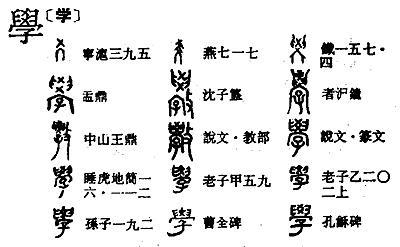 學〔学〕
寧滬三九五 燕七一七 鐵一五七·四
盂鼎 沈子簋 者沪鐵
中山王鼎 說文·教部 說文·篆文
睡虎地簡一六·一一二 老子甲五九 老子乙二〇二上
孫子一九二 曹全碑 孔龢碑